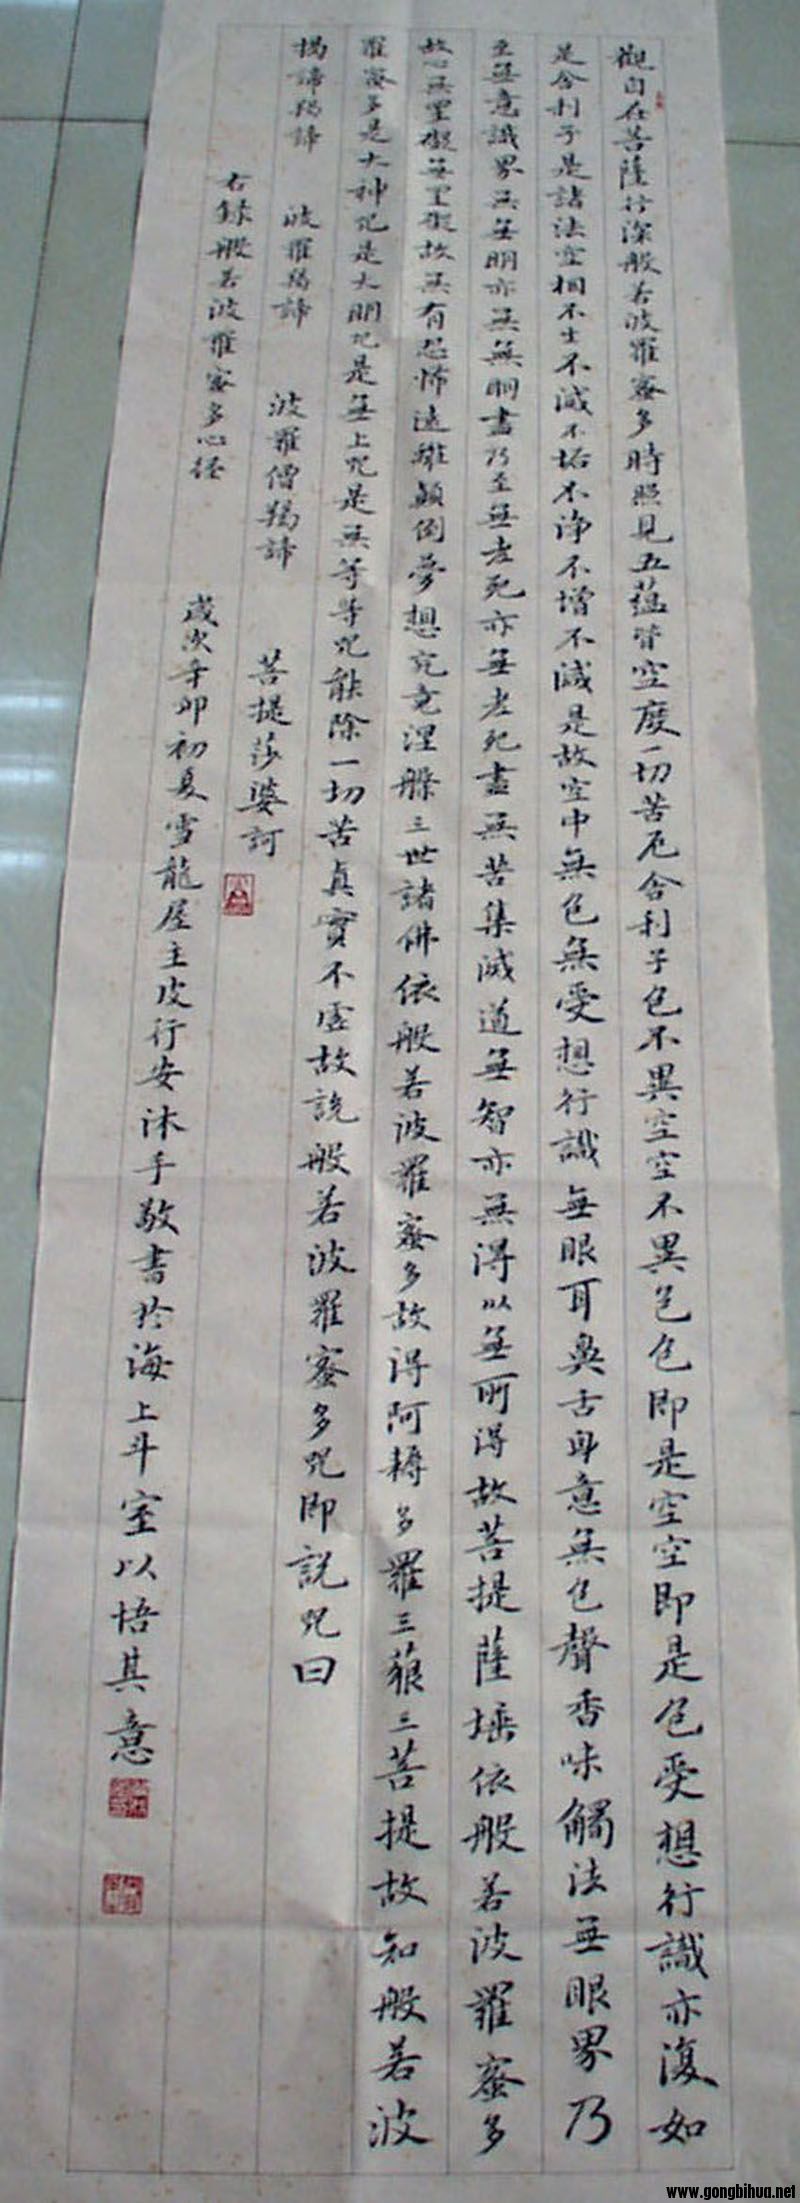 觀自在菩薩行深般若波羅蜜多時照見五蘊皆空度一切苦厄舍利子色不異空空不異色色即是空空即是色受想行識亦復如
是舍利子是諸法空相不生不滅不垢不净不增不減是故空中無色無受想行識無眼耳鼻舌身意無色聲香味觸法無眼界乃
至無意識界無無明亦無無明盡乃至無老死亦無老死盡無苦集滅道無智亦無得以無所得故菩提薩埵依般若波羅蜜多
故心無罣礙無罣礙故無有恐怖遠離顛倒夢想究竟涅槃三世諸佛依般若波羅蜜多故得阿耨多羅三藐三菩提故知般若波
羅蜜多是大神咒是大明咒是無上咒是無等等咒能除一切苦真實不虛故說般若波羅蜜多咒即說咒曰
揭諦揭諦 波羅揭諦 波羅僧羯諦 菩提莎婆訶
右錄般若波羅蜜多心経 歲次辛卯初夏雪龍屋主皮行安沐手敬書於海上斗室以悟其意
www.gongbihua.net